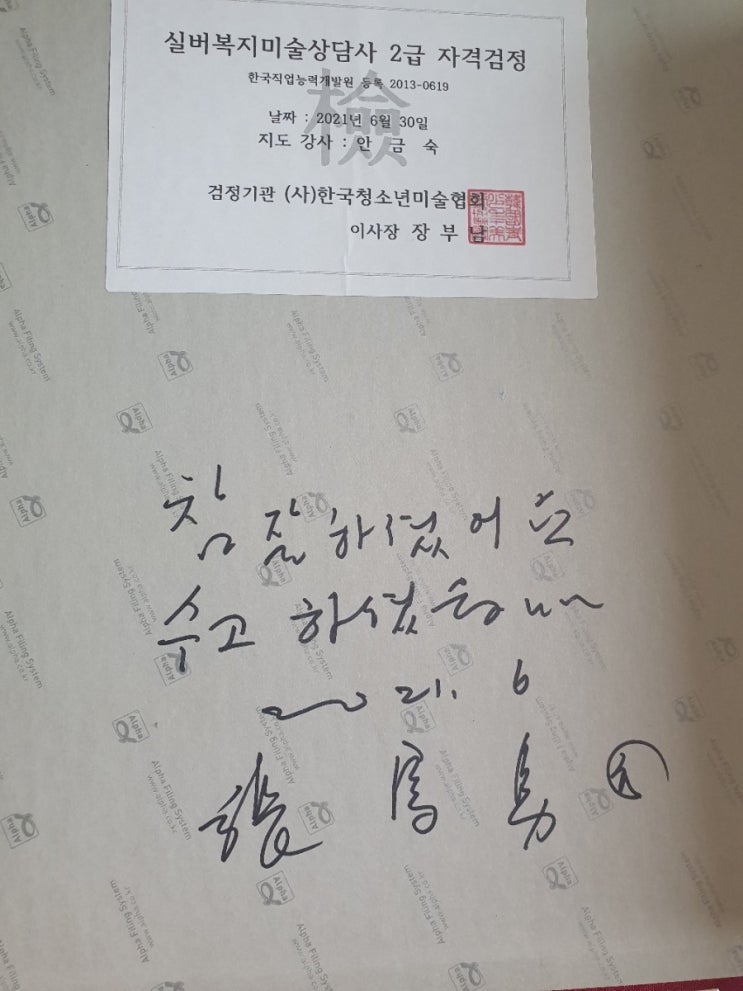 실버복지미술상담사 2급 자격검정
한국직업능력개발원 등록 2013-0619
檢
날짜 : 2021년 6월 30일
지도 강사 : 안 금 숙
검정기관 (사)한국청소년미술협회
이사장 장 부 남
참 잘 하셨어요
수고 하셨습니다
2021. 6
張 富 男
Alpha Filing System
www.alpha.co.kr
Alpha